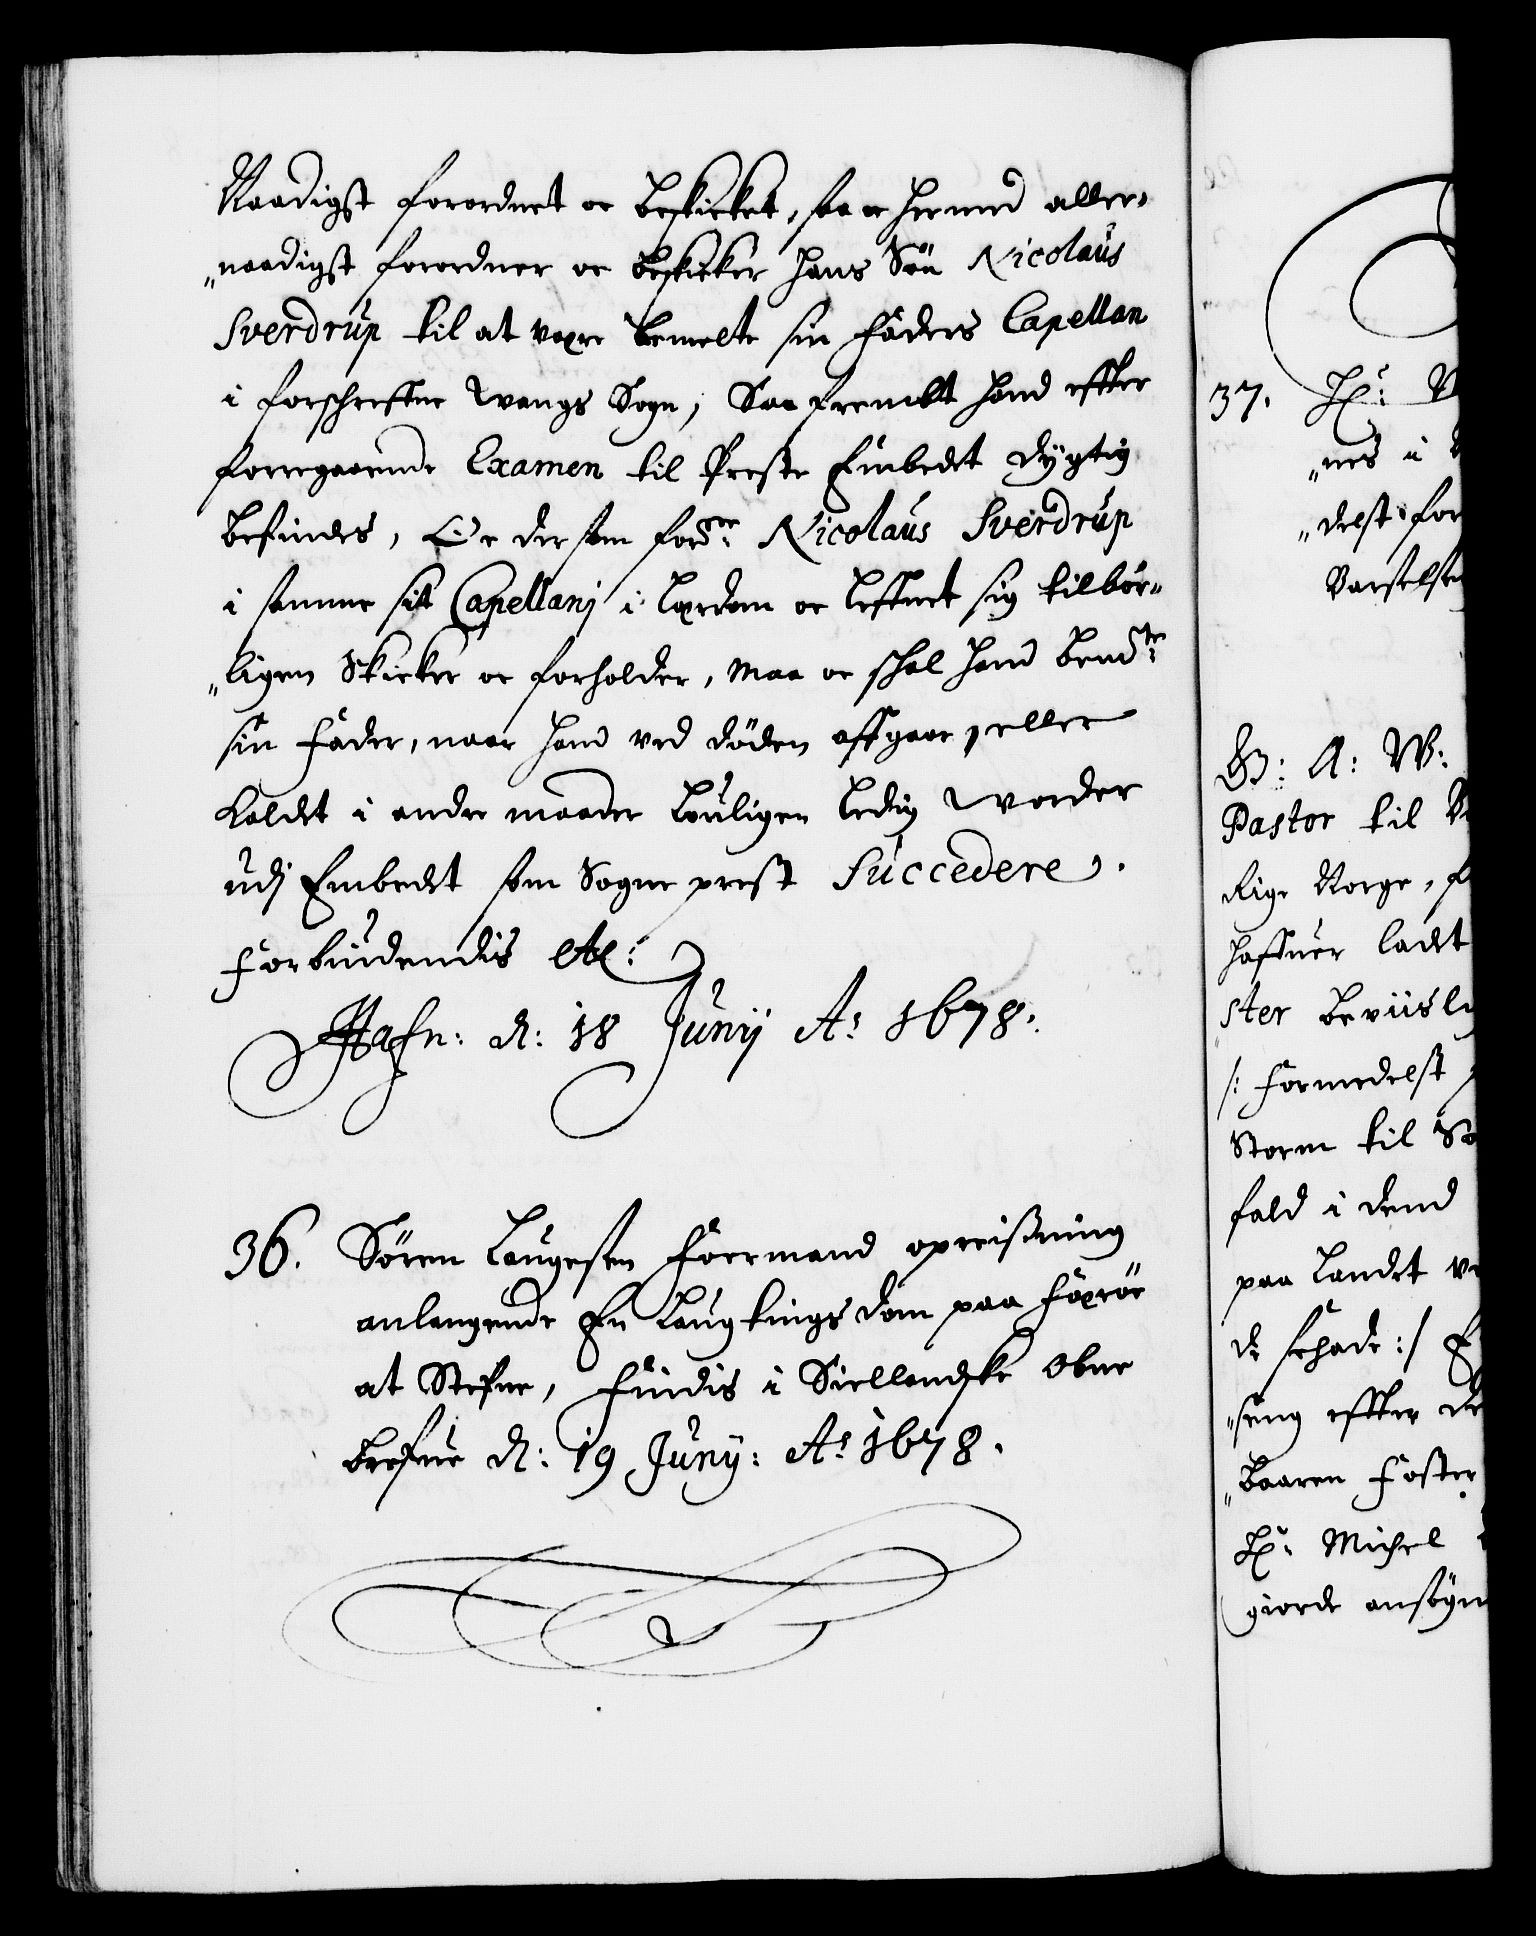 Naadigst forordnet oc beskicket, saa oc hermed aller-
"naadigst forordner oc beskicker hans Sön Nicolaus
Sverdrup til at være bemelte sin Faders Capellan
i forschreffne Wangs Sogn, Saa fremblt hand effter
foregaaende Examen til Preste Embedet dygtig
befindes, Oc dersom fordne: Nicolaus Sverdrup
i samme sit Capellanj i Lærdom oc Leffnet sig tilbör-
"ligen Skicker oc forholder, maa oc schal hand bemdte:
sin Fader, naar hand ved döden affgaar, eller
Kaldet i andre maader louligen ledig worder
udj Embedet som Sogne prest Succedere.
Forbiudendis etc:
Hafn: d: 18 Junij Ao 1678.
36. Sören Laugesen Foermand opreisning
anlangende En Laugtings dom paa Föxröe
at Stefne, Findis i Siellandske Obne
brefue d: 19 Junij: Ao 1678.
37. Hr:
"nes i
"delst for
Varselste
G: A: W:
Pastor til
Rige Norge, f
haffuer ladet
"ster beviislig
/: Formedelst
Storm til So
fald i dend
paa Landet
de schade :/ E
"seng effter de
"baaren Foster
Hr: Michel
giorde ansögn